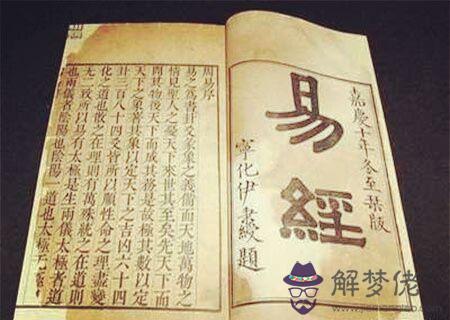 嘉慶十年冬至栞版
易經
寧化伊秉綬題
周易序
易之為書卦爻彖象之義備而天地萬物之
情見聖人之憂天下來世其至矣先天下而
開其物後天下而成其務是故極其數以定
天下之象著其象以定天下之吉凶六十四
卦三百八十四爻皆所以順性命之理盡變
化之道也散之在理則有萬殊統之在道則
无二致所以易有太極是生兩儀太極者道
也兩儀者陰陽也陰陽一道也太極无
解梦佬